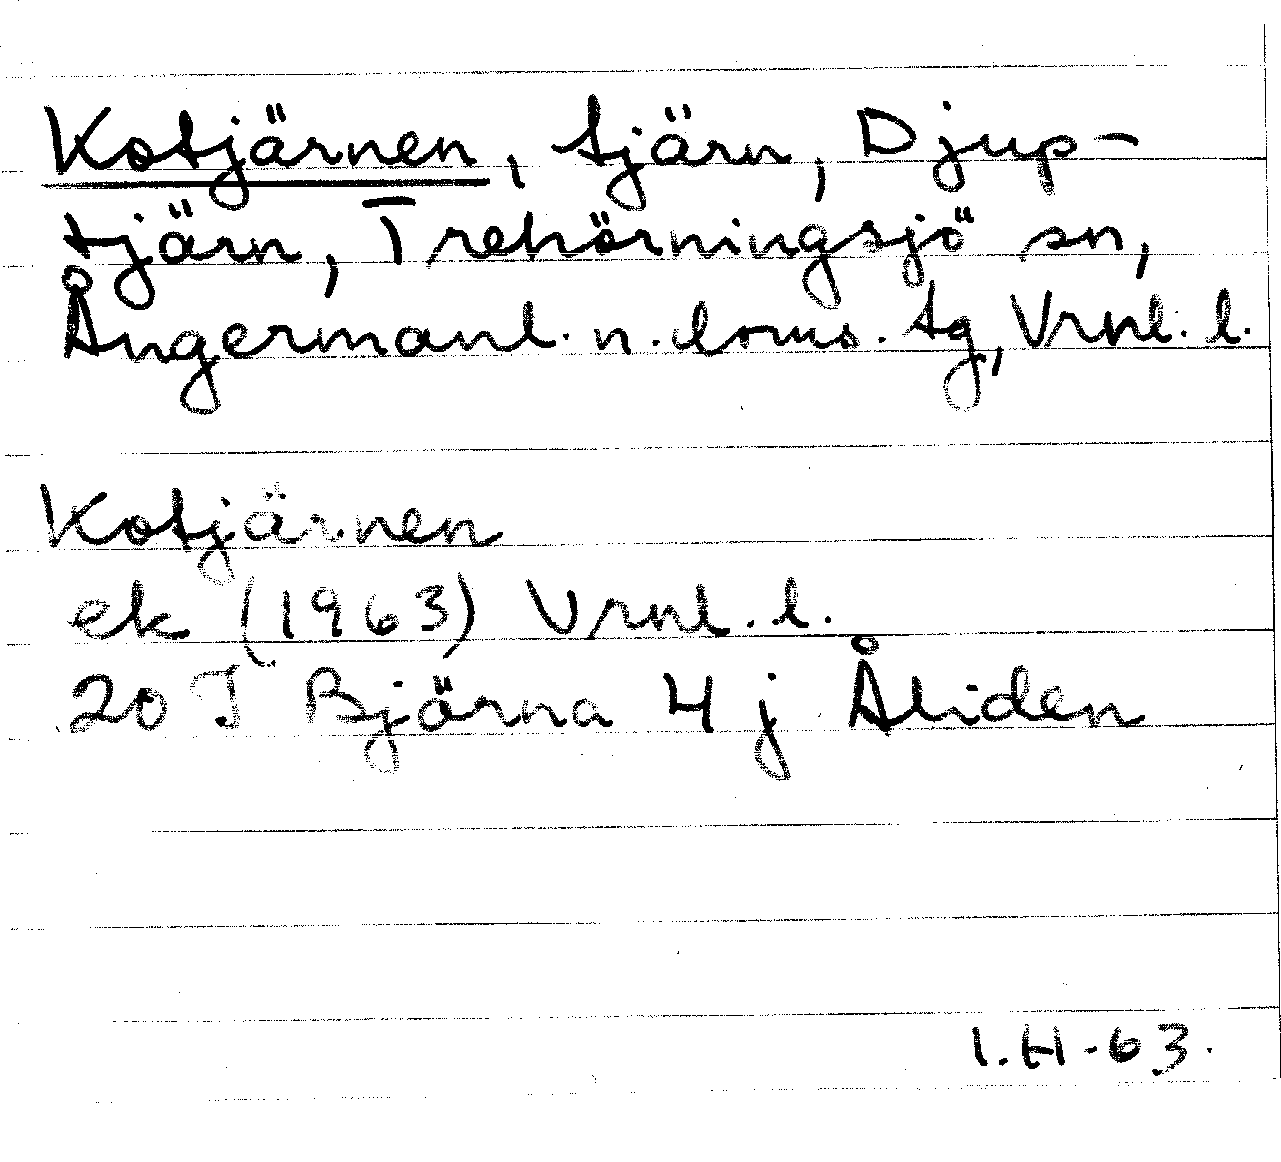 Kotjärnen, tjärn, Djup-
tjärn, Trehörningsjö sn,
Ångermanl. n. doms. tg, Vrnl. l.
Kotjärnen
ek (1963) Vrnl. l.
20 I Björna 4 j Åliden
I.H-63.